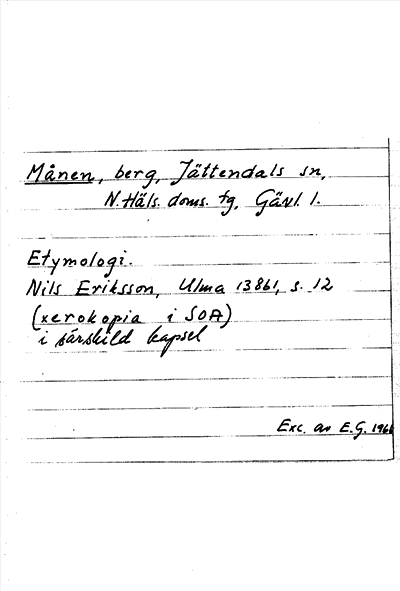 Månen, berg, Jättendals sn,
N. Häls. doms. tg, Gävl. l.
Etymologi.
Nils Eriksson, Ulma 13861, s. 12
(xerokopia i SOA)
i särskild kapsel
Exc. av E.G. 1966